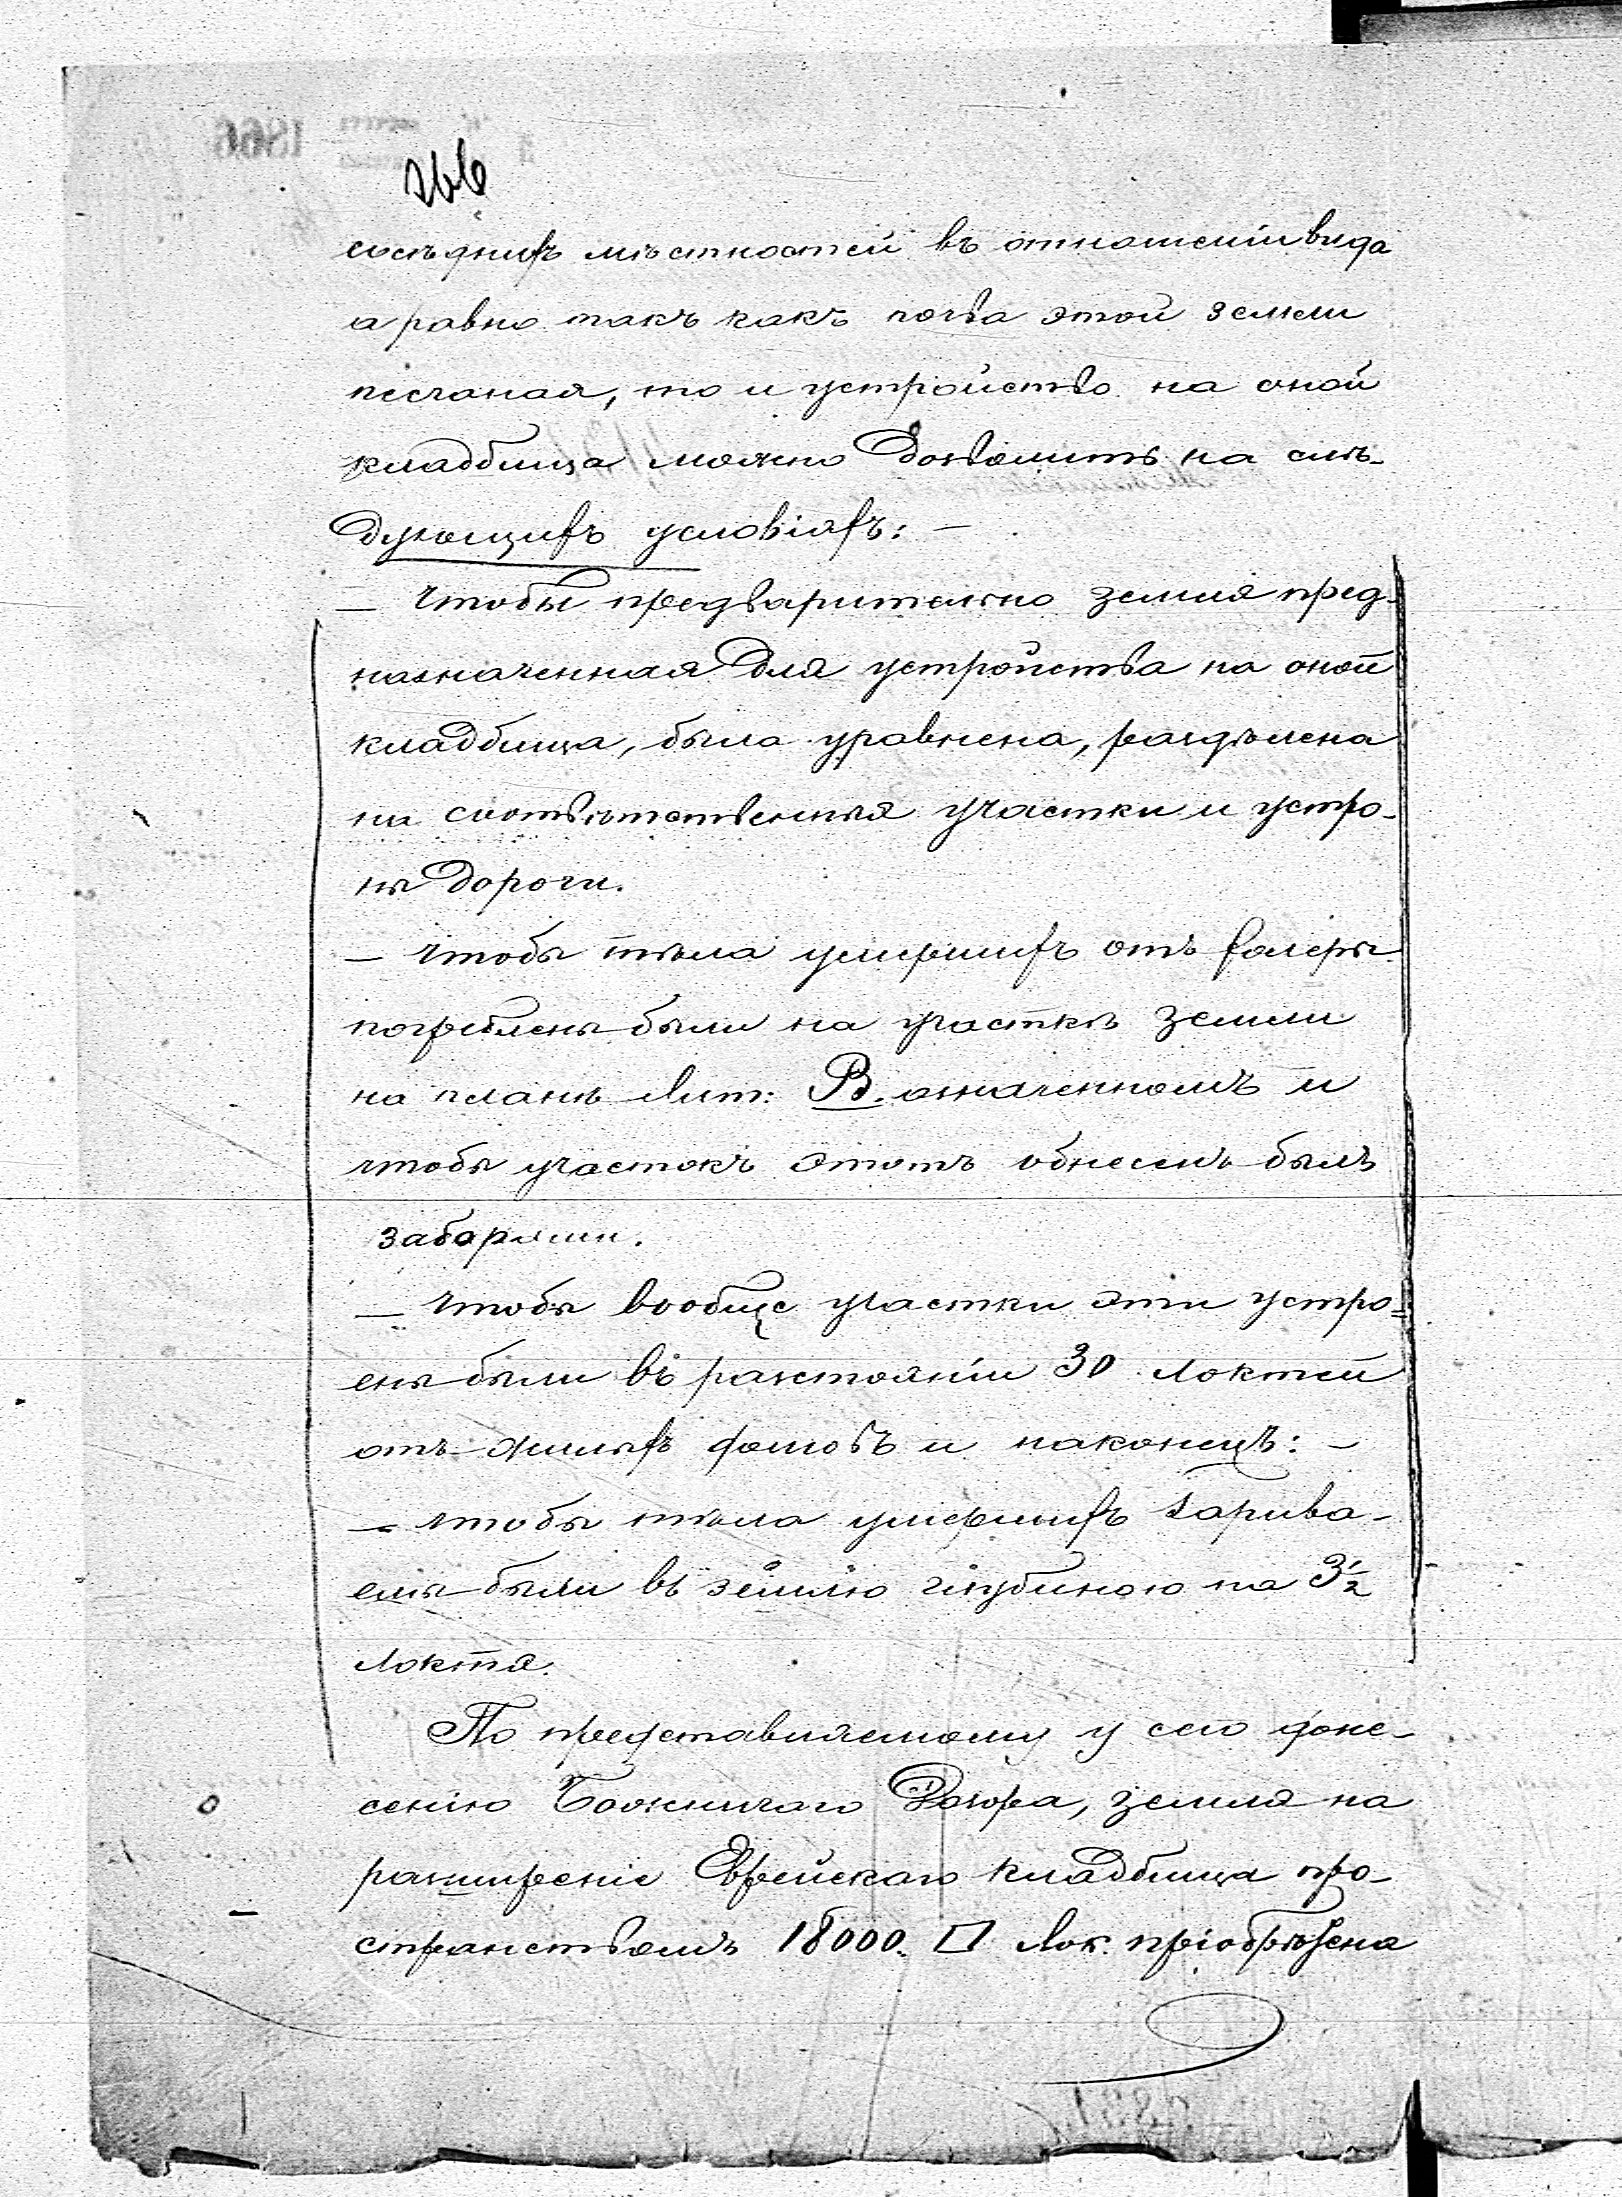 сосѣднихъ мѣстностей въ отношеніи вида
а равно такъ какъ почва этой земли
песчаная, то и устройство на оной
кладбища можно дозволить на слѣ-
дующихъ условіяхъ: —
— чтобы предварительно земля пред-
назначенная для устройства на оной
кладбища, была уравнена, раздѣлена
на соотвѣтственныя участки и устро-
ны дороги.
— чтобы тѣла умершихъ отъ холеры
погреблены были на участкѣ земли
на планѣ Лит: В. означенномъ и
чтобы участокъ этотъ обнесенъ былъ
заборами.
— чтобы вообще участки эти устро-
ены были въ разстояніи 30 локтей
отъ жилыхъ домовъ и наконецъ: —
— чтобы тѣла умершихъ зарыва-
емы были въ землю глубиною на 3½
локтя.
По представляемому у сего доне-
сенію Божничаго Дозора, земля на
разширеніе Еврейскаго кладбища про-
странствомъ 18000. □ Лок. пріобрѣтена